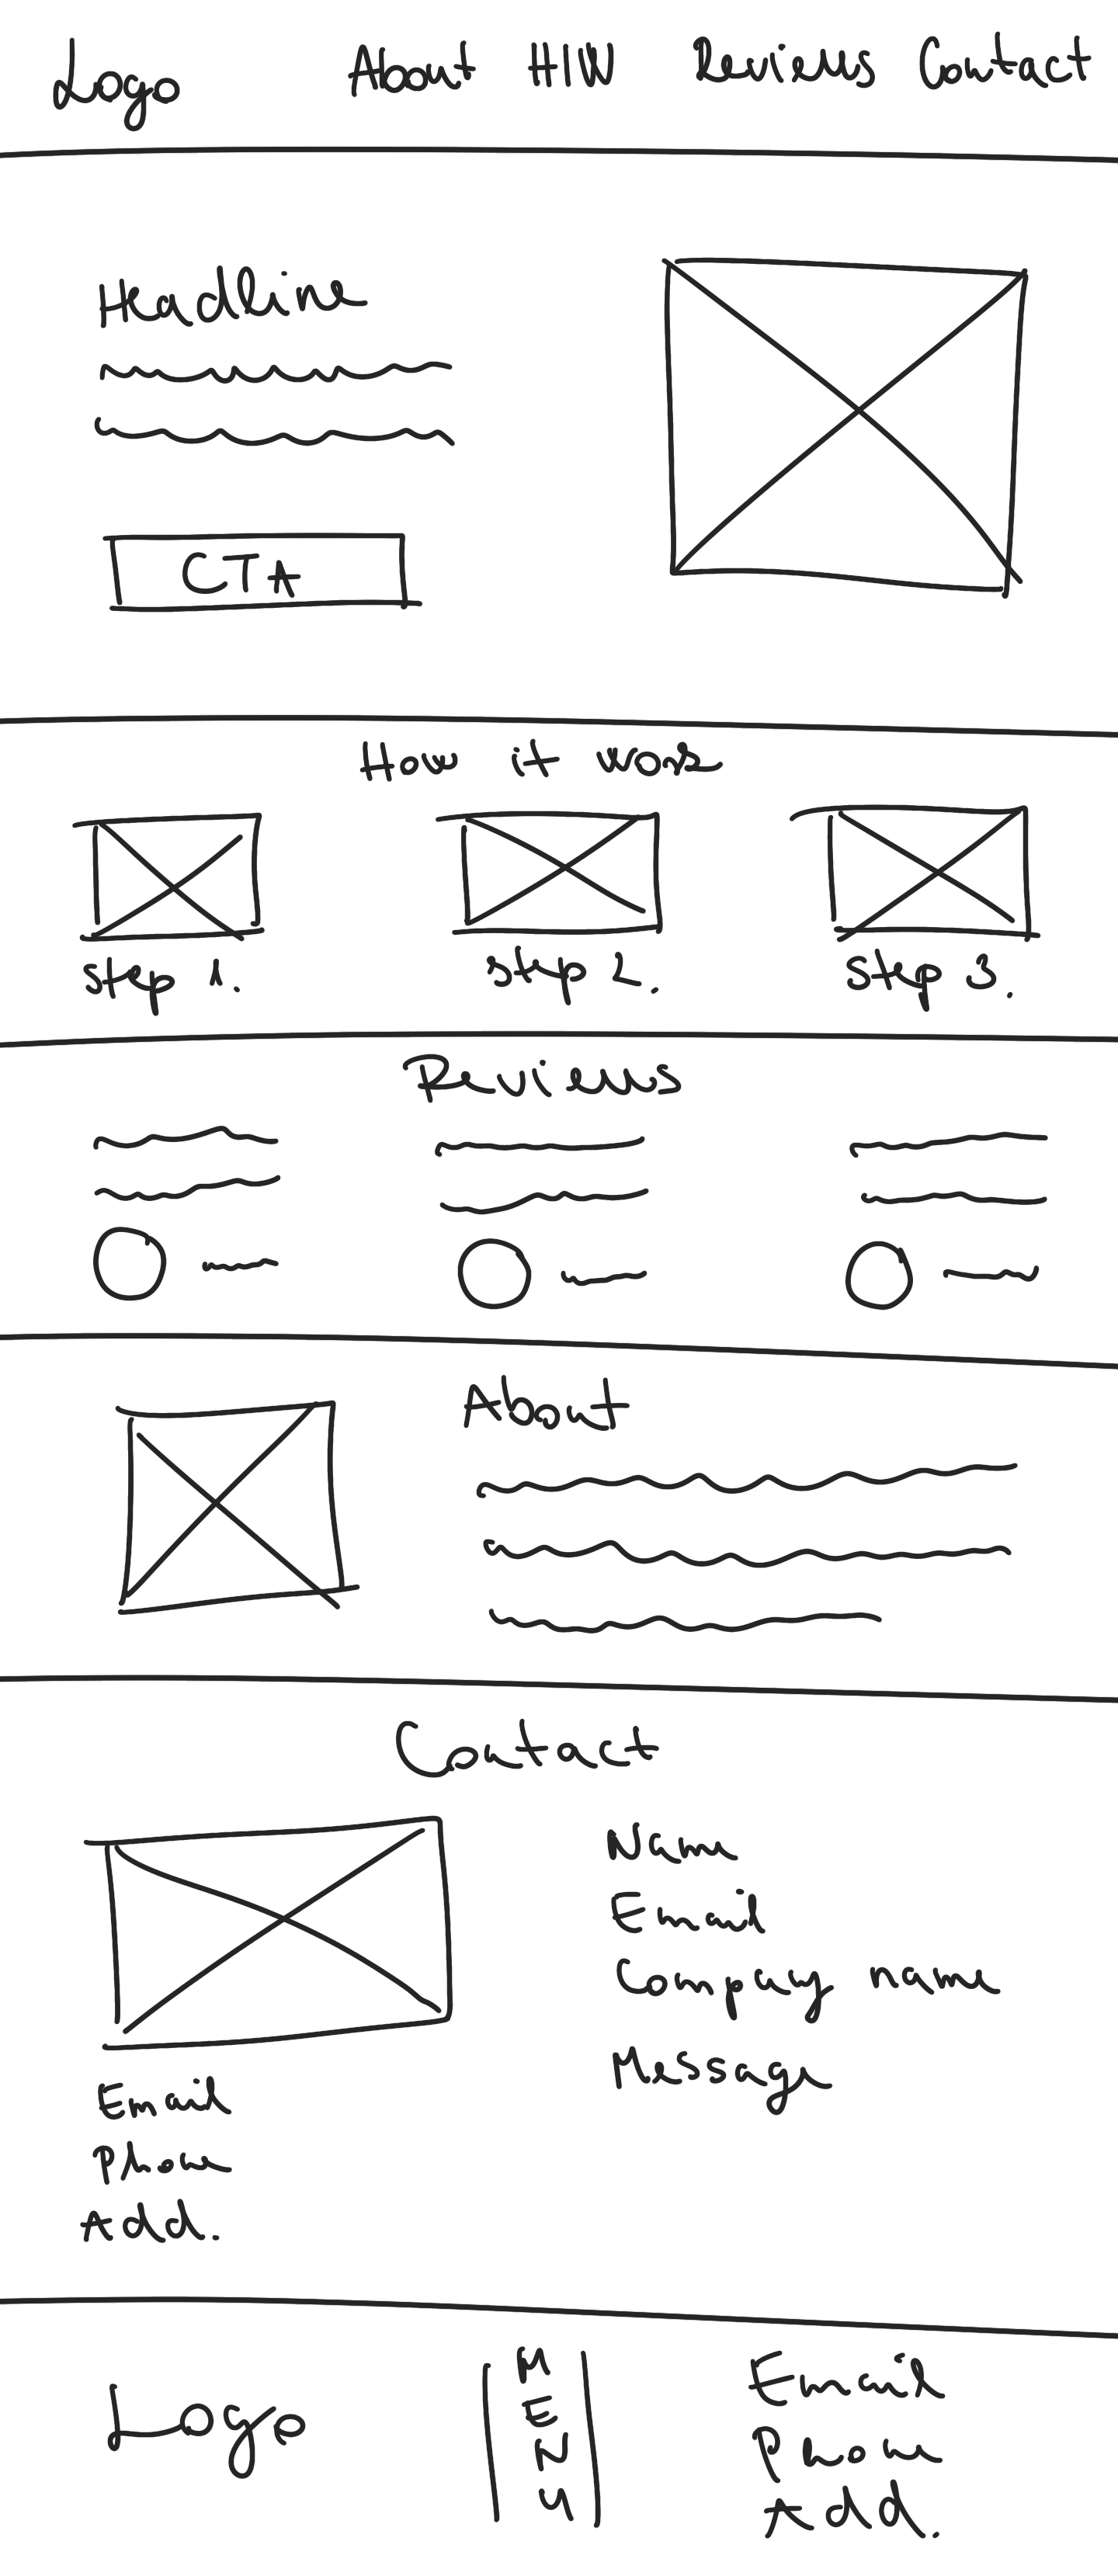 Logo About HIW Reviews Contact
Headline
CTA
How it works
step 1. step 2. step 3.
Reviews
About
Contact
Name
Email
Compay name
Message
Email
Phone
Add.
Logo
MENU
Email
Phon
Add.